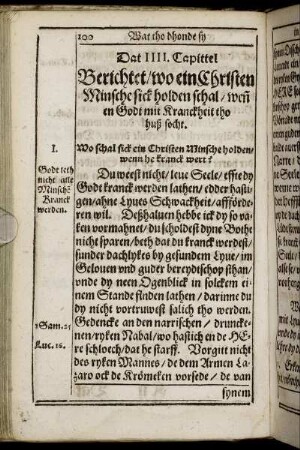 100 Wat tho dhonde sy
Dat IIII. Capittel
Berichtet/wo ein Christen
Minsche sick holden schal/weñ
en Godt mit Kranckheit tho
huß socht.
I.
Godt leth
nicht alle
Minschẽ
Kranck
werden.
Wo schal sick ein Christen Minsche holden/
wenn he kranck wert?
Du weest nicht/leue Seele/effte dy
Godt kranck werden lathen/edder hasti-
gen/ahne Lyues Schwackheit/affförde-
ren wil. Deßhaluen hebbe ick dy so va-
ken vormahnet/du scholdest dyne Bothe
nicht sparen/beth dat du kranck werdest/
sunder dachlykes by gesundem Lyue/im
Gelouen vnd guder bereydtschop sthan/
vnde dy neen Ogenblick in solckem ei-
nem Stande finden lathen/darinne du
dy nicht vortruwest salich tho werden.
1 Sam. 25
Luc. 16.
Gedencke an den narrischen/druncke-
nen/ryken Nabal/wo hastich en de HE-
re schloech/dat he starff. Vorgitt nicht
des ryken Mannes/de dem Armen La-
zaro ock de Krömeken vorsede/de van
synem